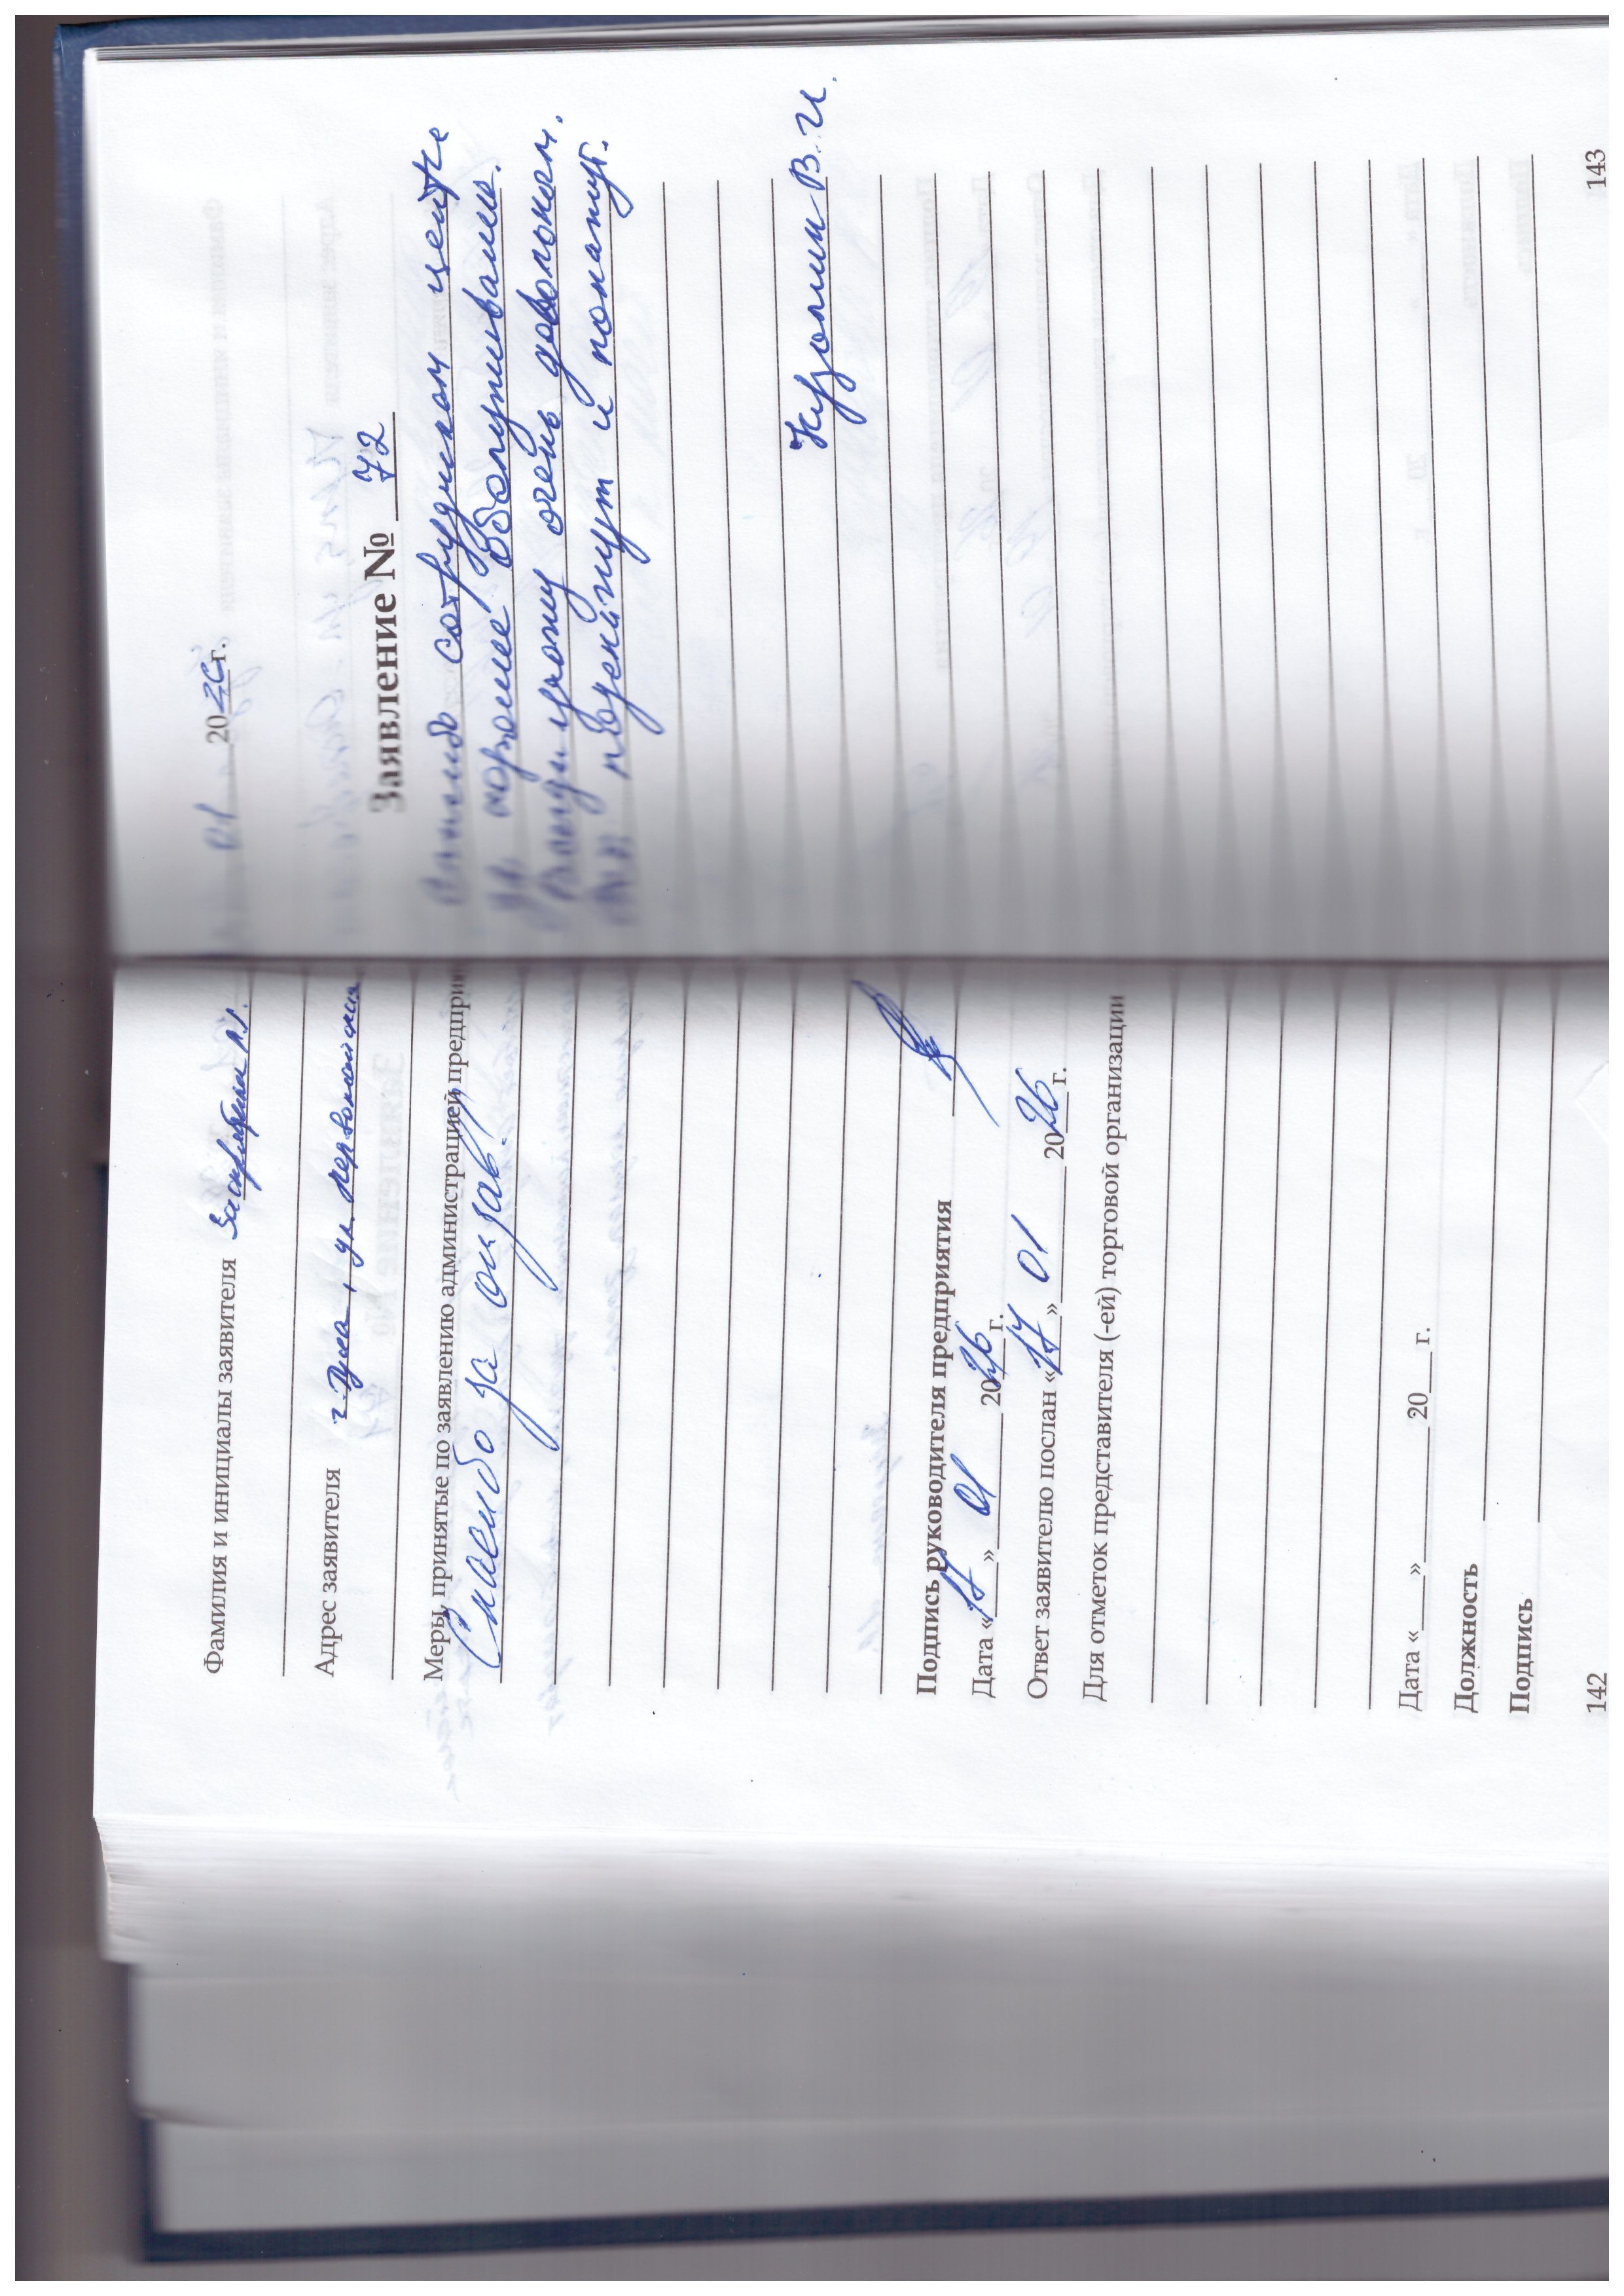 Фамилия и инициалы заявителя
Адрес заявителя г. Тула, ул. Первомайская
Меры, принятые по заявлению администрацией предпри
Спасибо за отзыв!
Подпись руководителя предприятия
Дата «17» 01 2026 г.
Ответ заявителю послан «17» 01 2026 г.
Для отметок представителя (-ей) торговой организации
Дата «___» ________ 20___ г.
Должность
Подпись
142
01 20 г.
Заявление № 72
сотрудникам
за хорошее обслуживание.
очень довольны.
подскажут и покажут.
В.И.
143